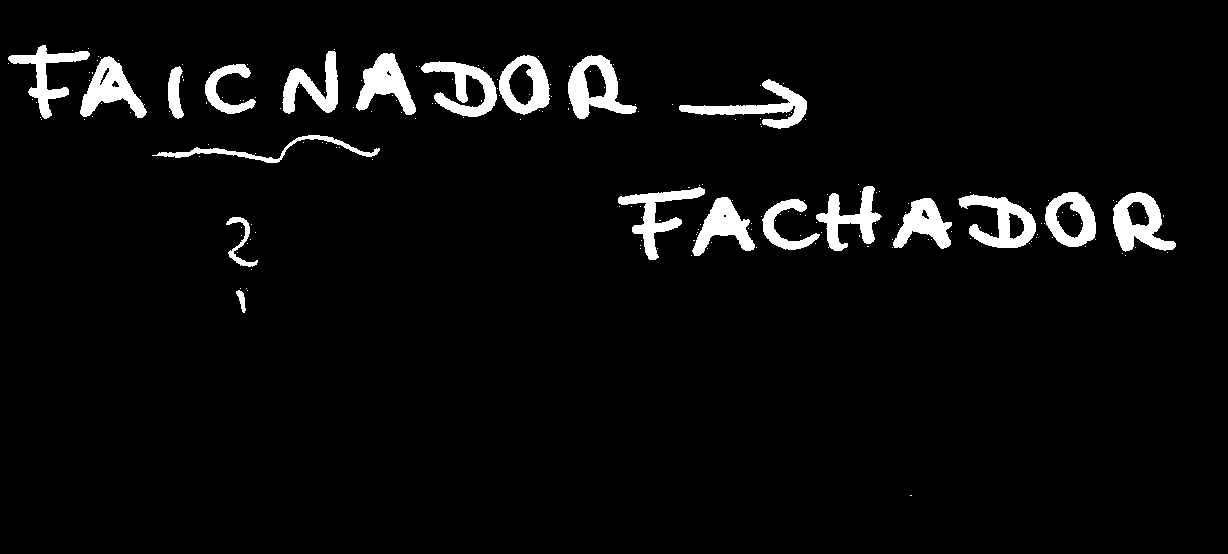 FAICNADOR →
?
FACHADOR